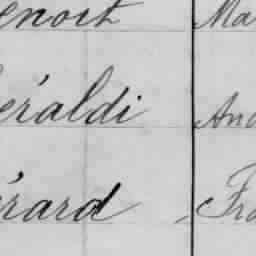 enoit Ma
éraldi And
érard Fra